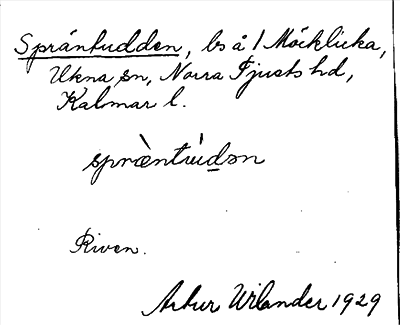 Språntudden, bs å 1 Möcklicka,
Ukna sn, Norra Tjusts hd,
Kalmar l.
spræ̀ntúdən
Riven.
Artur Wilander 1929